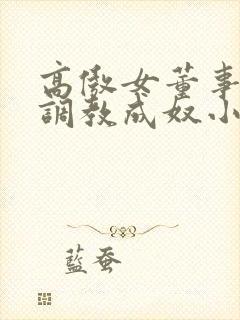 高傲女董事
調教成奴小
藍蚕